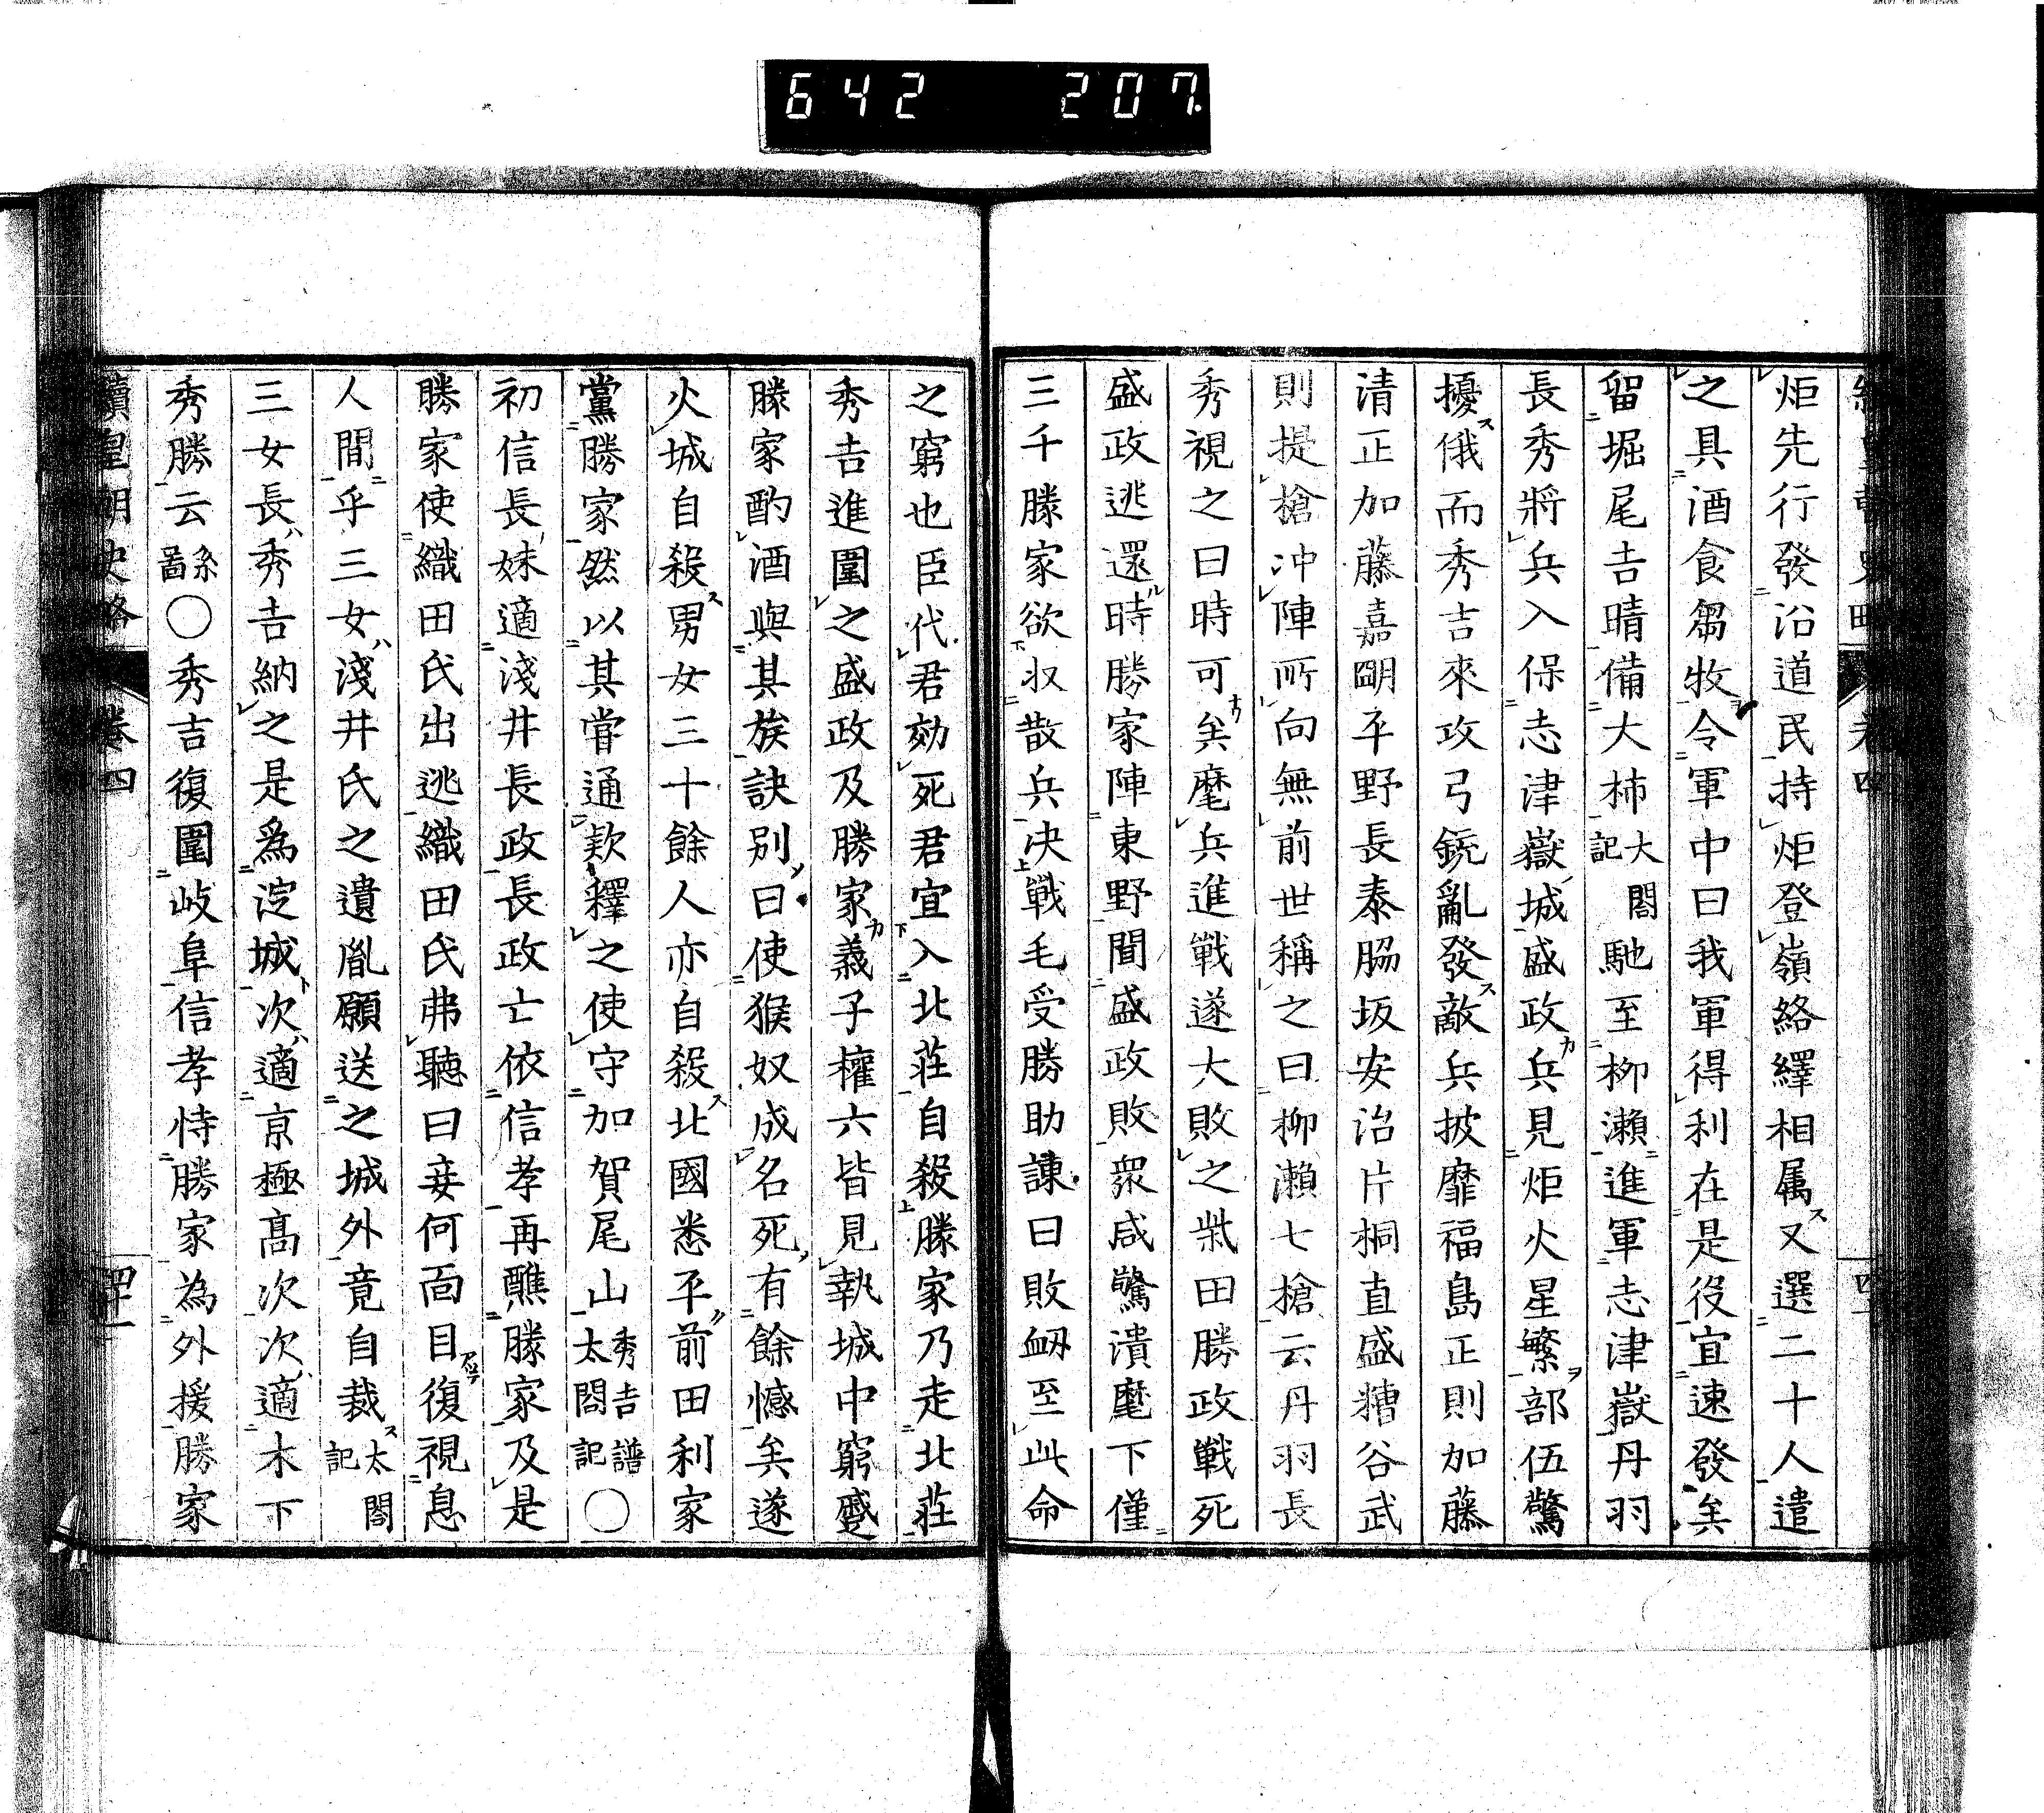 642 207
炬先行發沿道民持炬登嶺絡繹相属又選二十人遣
之具酒食芻牧令軍中曰我軍得利在是役宜速發矣
留堀尾吉晴備大柿大閤記馳至柳瀬進軍志津嶽丹羽
長秀將兵入保志津嶽城盛政兵見炬火星繁部伍驚
擾俄而秀吉來攻弓銃亂發敵兵披靡福島正則加藤
清正加藤嘉明平野長泰脇坂安治片桐直盛糟谷武
則提槍冲陣所向無前世稱之曰柳瀬七槍云丹羽長
秀視之曰時可矣麾兵進戰遂大敗之柴田勝政戰死
盛政逃還時勝家陣東野聞盛政敗衆咸驚潰麾下僅
三千勝家欲収散兵决戰毛受勝助諌曰敗衂至此命
之窮也臣代君効死君宜入北莊自殺勝家乃走北莊
秀吉進圍之盛政及勝家義子權六皆見執城中窮蹙
勝家酌酒與其族訣別曰使猴奴成名死有餘憾矣遂
火城自殺男女三十餘人亦自殺北國悉平前田利家
黨勝家然以其甞通欵釋之使守加賀尾山秀吉譜太閤記〇
初信長妹適淺井長政長政亡依信孝再醮勝家及是
勝家使織田氏出逃織田氏弗聽曰妾何面目復視息
人間乎三女淺井氏之遺胤願送之城外竟自裁太閤記
三女長秀吉納之是為淀城次適京極高次次適木下
秀勝云系啚〇秀吉復圍岐阜信孝恃勝家為外援勝家
續皇朝史略 卷四 四十一